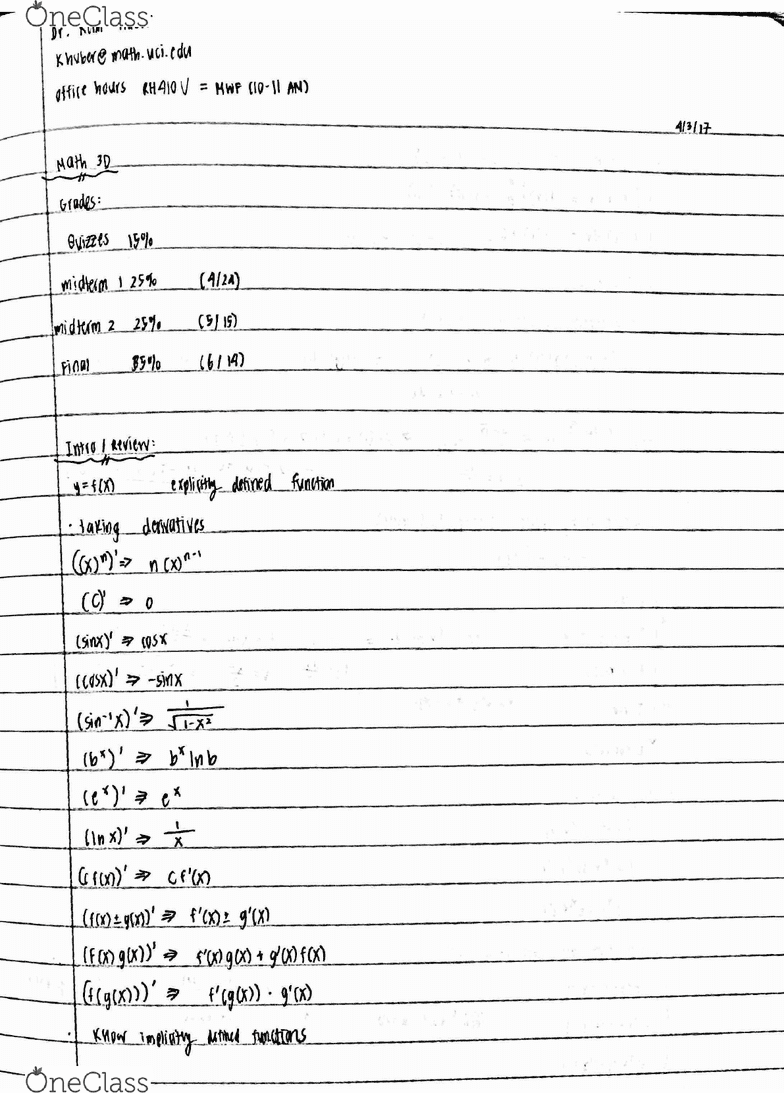 OneClass
Dr.
Khuber@math.uci.edu
office hours RH410V = MWF (10-11 AM)
4/3/17
Math 3D
Grades:
Quizzes 15%
midterm 1 25% (4/24)
midterm 2 25% (5/15)
Final 35% (6/14)
Intro / Review:
y=f(x) explicitly defined function
· taking derivatives
((x)ⁿ)' ⇒ n(x)ⁿ⁻¹
(C)' ⇒ 0
(sinx)' ⇒ cosx
(cosx)' ⇒ -sinx
(sin⁻¹x)' ⇒ 1/√(1-x²)
(bˣ)' ⇒ bˣ ln b
(eˣ)' ⇒ eˣ
(ln x)' ⇒ 1/x
(c f(x))' ⇒ c f'(x)
(f(x) ± g(x))' ⇒ f'(x) ± g'(x)
(f(x) g(x))' ⇒ f'(x) g(x) + g'(x) f(x)
(f(g(x)))' ⇒ f'(g(x)) · g'(x)
· Know implicitly defined functions
OneClass